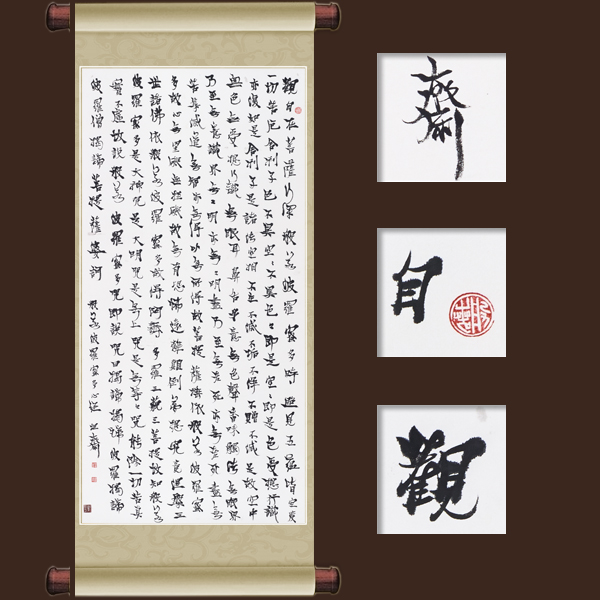 觀自在菩薩行深般若波羅蜜多時照見五蘊皆空度
一切苦厄舍利子色不異空空不異色色即是空空即是色受想行識
亦復如是舍利子是諸法空相不生不滅不垢不淨不增不減是故空中
無色無受想行識無眼耳鼻舌身意無色聲香味觸法無眼界
乃至無意識界無無明亦無無明盡乃至無老死亦無老死盡無
苦集滅道無智亦無得以無所得故菩提薩埵依般若波羅蜜
多故心無罣礙無罣礙故無有恐怖遠離顛倒夢想究竟涅槃三
世諸佛依般若波羅蜜多故得阿耨多羅三藐三菩提故知般若
波羅蜜多是大神咒是大明咒是無上咒是無等等咒能除一切苦真
實不虛故說般若波羅蜜多咒即說咒曰揭諦揭諦波羅揭諦
波羅僧揭諦菩提薩婆訶 般若波羅蜜多心經
自
觀